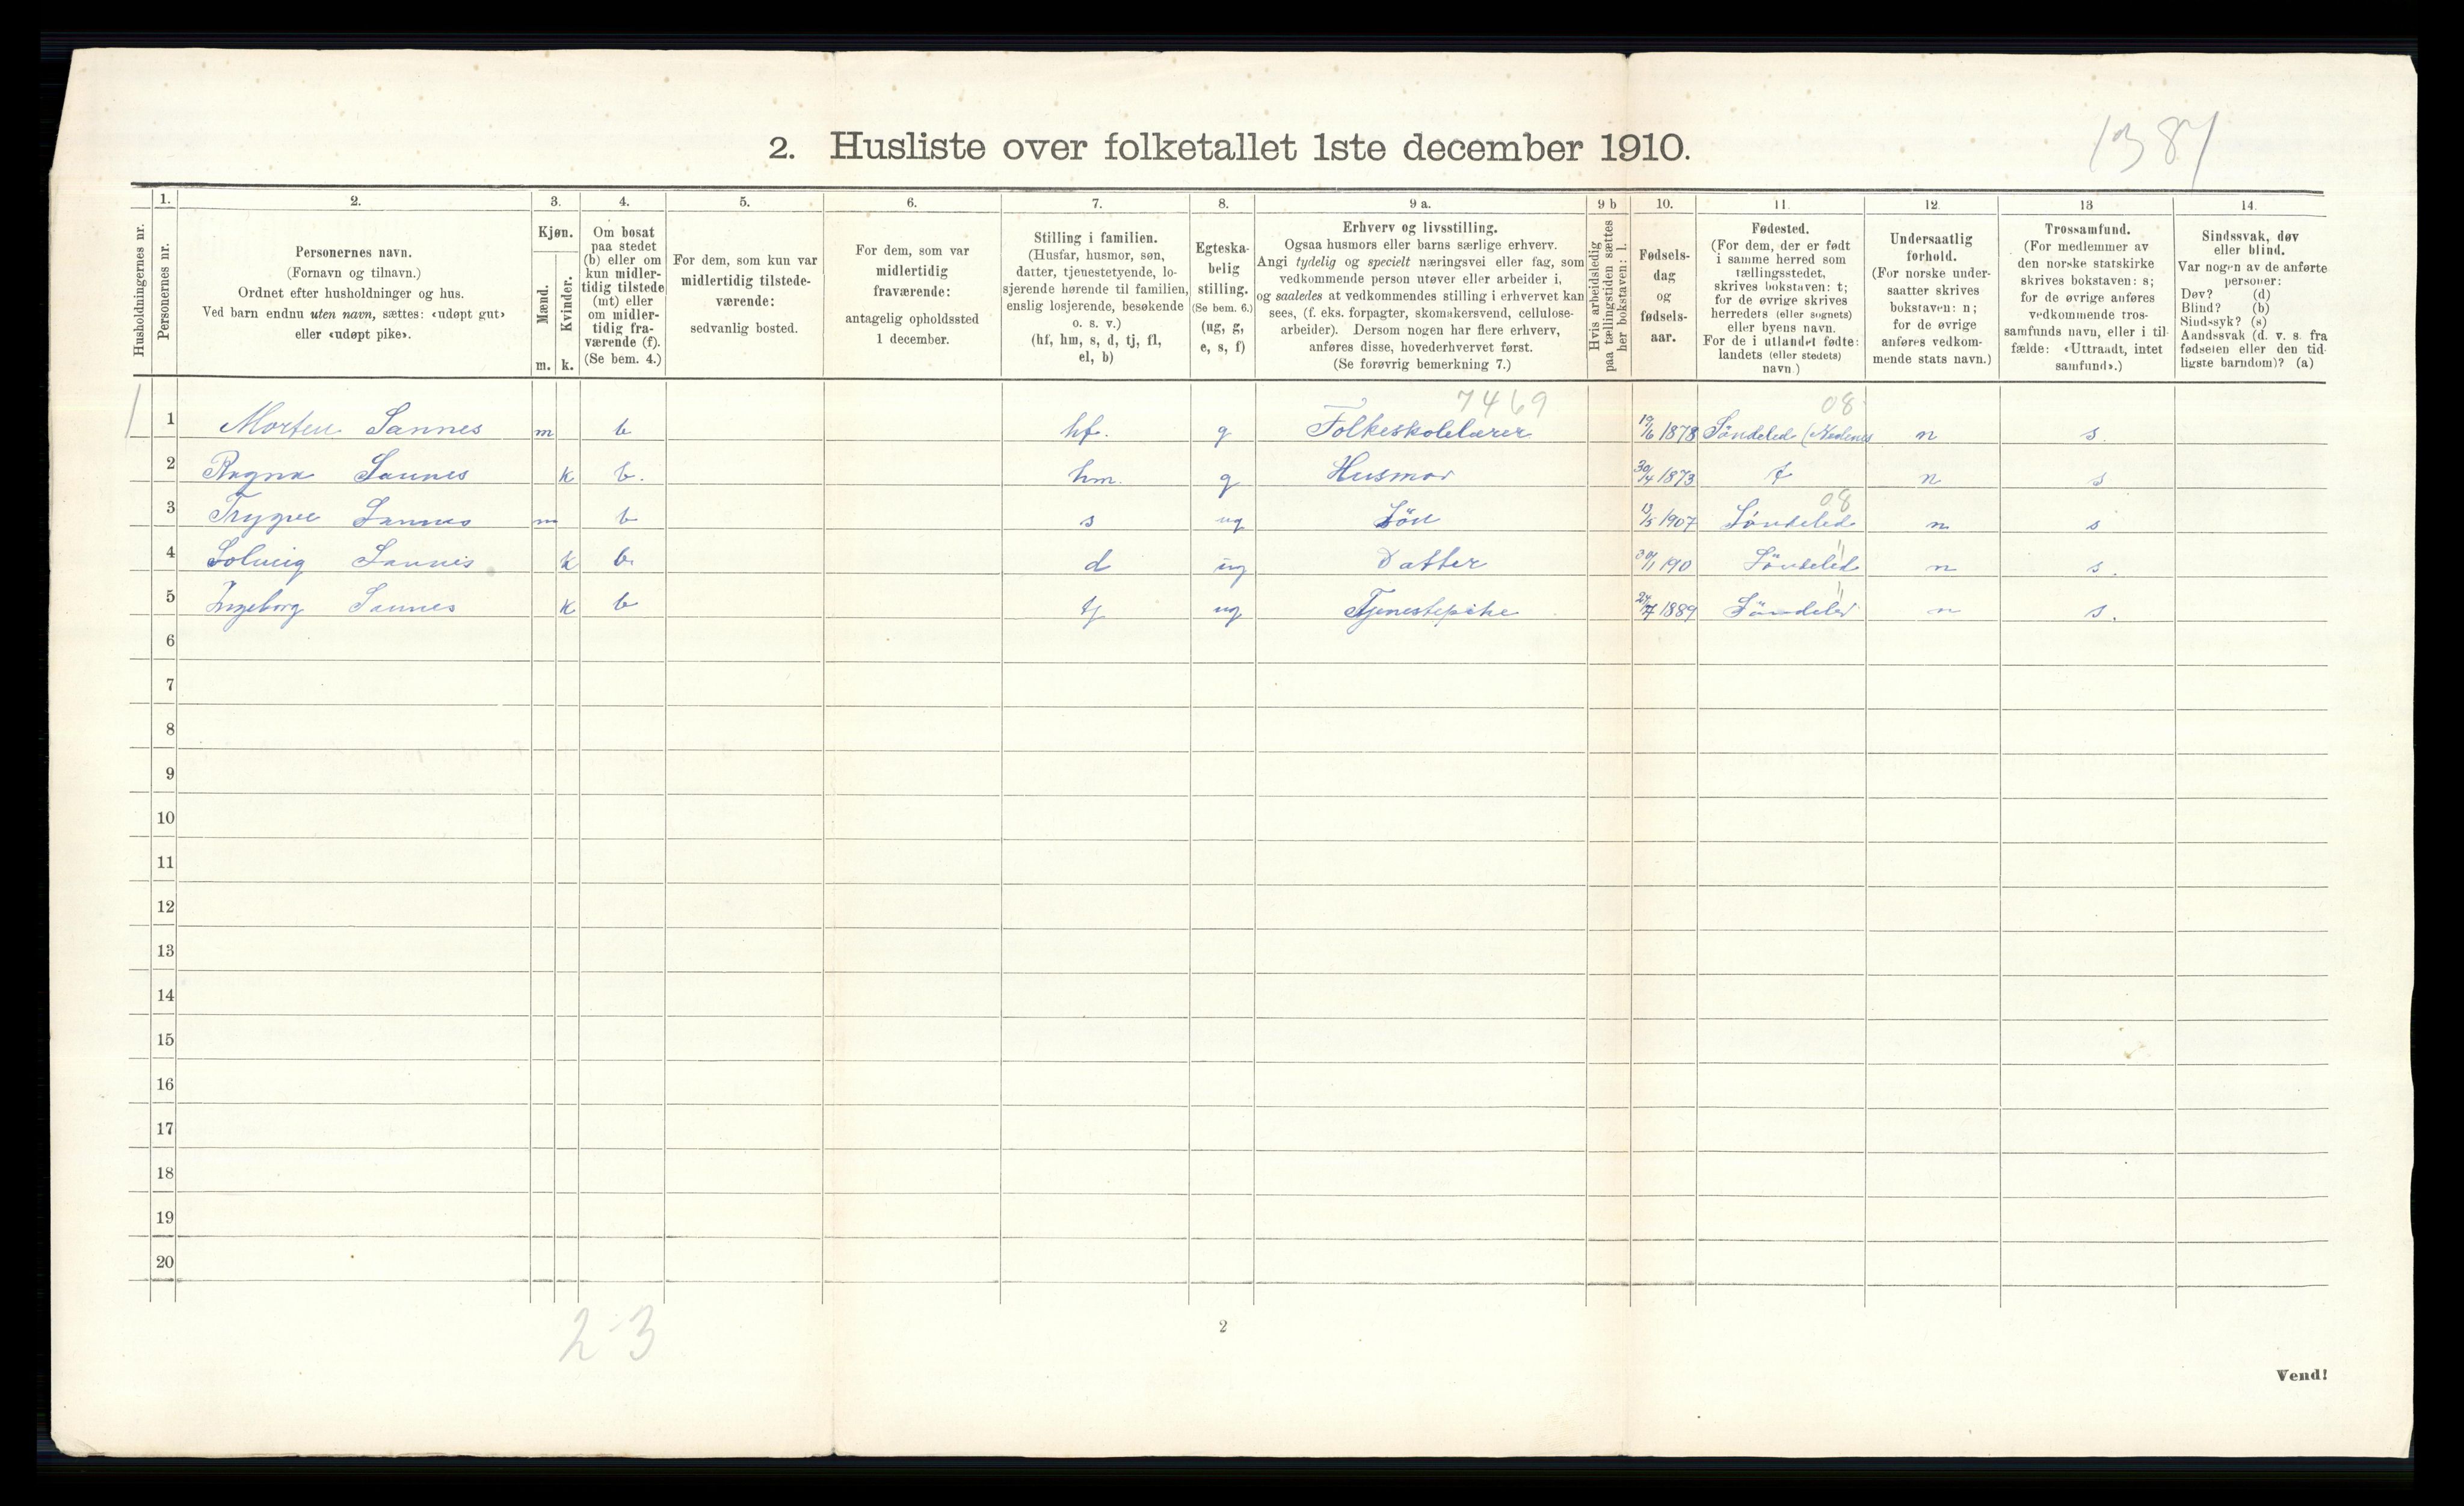 1387
2. Husliste over folketallet 1ste december 1910.
Husholdningernes nr.
1.
Personernes nr.
2.
Personernes navn.
(Fornavn og tilnavn.)
Ordnet efter husholdninger og hus.
Ved barn endnu uten navn, sættes: «udøpt gut»
eller «udøpt pike».
3.
Kjøn.
Mænd.
Kvinder.
m. k.
4.
Om bosat
paa stedet
(b) eller om
kun midler-
tidig tilstede
(mt) eller
om midler-
tidig fra-
værende (f).
(Se bem. 4.)
5.
For dem, som kun var
midlertidig tilstede-
værende:
sedvanlig bosted.
6.
For dem, som var
midlertidig
fraværende:
antagelig opholdssted
1 december.
7.
Stilling i familien.
(Husfar, husmor, søn,
datter, tjenestetyende, lo-
sjerende hørende til familien,
enslig losjerende, besøkende
o. s. v.)
(hf, hm, s, d, tj, fl,
el, b)
8.
Egteska-
belig
stilling.
(Se bem. 6.)
(ug, g,
e, s, f)
9 a.
Erhverv og livsstilling.
Ogsaa husmors eller barns særlige erhverv.
Angi tydelig og specielt næringsvei eller fag, som
vedkommende person utøver eller arbeider i,
og saaledes at vedkommendes stilling i erhvervet kan
sees, (f. eks. forpagter, skomakersvend, cellulose-
arbeider). Dersom nogen har flere erhverv,
anføres disse, hovederhvervet først.
(Se forøvrig bemerkning 7.)
9 b
Hvis arbeidsledig
paa tællingstiden sættes
her bokstaven: l.
10.
Fødsels-
dag
og
fødsels-
aar.
11.
Fødested.
(For dem, der er født
i samme herred som
tællingsstedet,
skrives bokstaven: t;
for de øvrige skrives
herredets (eller sognets)
eller byens navn.
For de i utlandet fødte:
landets (eller stedets)
navn.)
12.
Undersaatlig
forhold.
(For norske under-
saatter skrives
bokstaven: n;
for de øvrige
anføres vedkom-
mende stats navn.)
13
Trossamfund.
(For medlemmer av
den norske statskirke
skrives bokstaven: s;
for de øvrige anføres
vedkommende tros-
samfunds navn, eller i til-
fælde: «Uttraadt, intet
samfund».)
14.
Sindssvak, døv
eller blind.
Var nogen av de anførte
personer:
Døv? (d)
Blind? (b)
Sindssyk? (s)
Aandssvak (d. v. s. fra
fødselen eller den tid-
ligste barndom)? (a)
7469 08
1 1 Morten Sannes m b hf. g Folkeskolelærer 19/6 1878 Söndeled (Nedenes n s.
2 Ragna Sannes k b. hm. g Husmor 30/4 1873 t n s
08
3 Trygve Sannes m b s ug Sön 13/5 1907 Söndeled n s
4 Solveig Sannes k b. d ug Datter 190 Söndeled n s.
5 Ingeborg Sannes k b tj ug Tjenestepike 24/7 1889 Söndeled n s.
6
7
8
9
10
11
12
13
14
15
16
17
18
19
20
2-3
2
Vend!